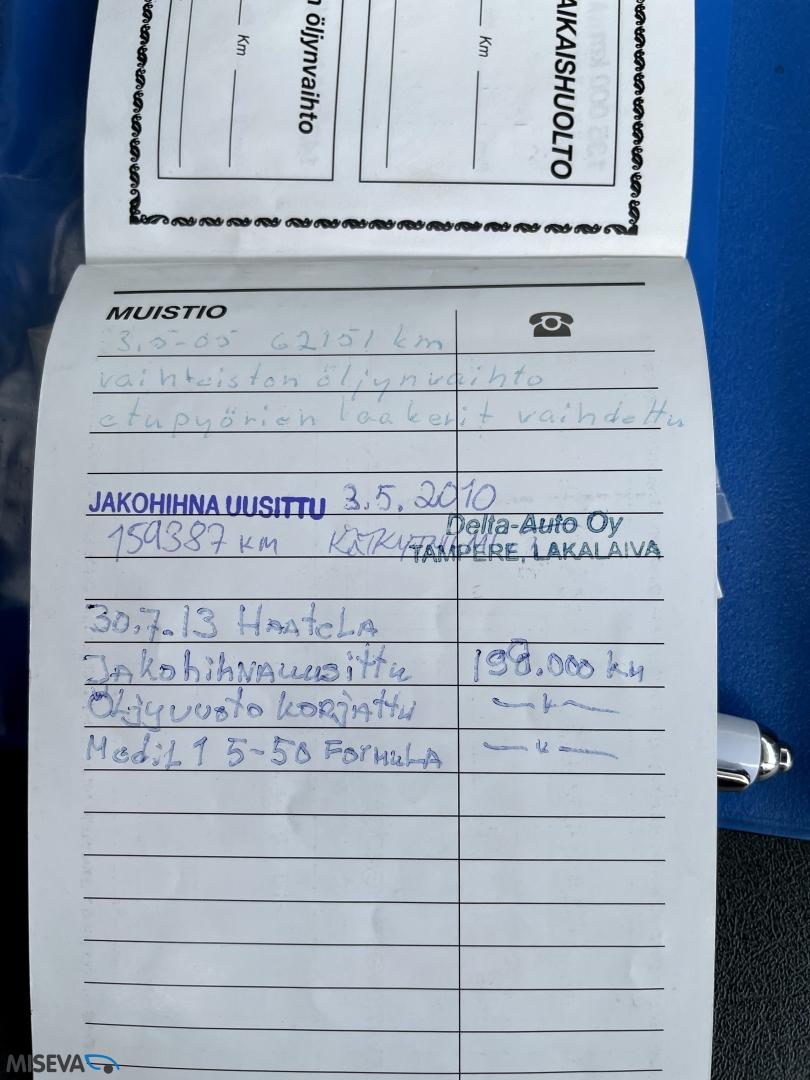 Km
Km
n öljynvaihto
AIKAISHUOLTO
MUISTIO
3.5-05 62151 km
vaihteiston öljynvaihto
etupyörien laakerit vaihdettu
JAKOHIHNA UUSITTU 3.5.2010
Delta-Auto Oy
159387 KM
TAMPERE, LAKALAIVA
30.7.13 HAATELA
JAKOhihNAuusittu 198.000 km
ÖLJYVUOTO KORJATTU —〃—
5-50 FORMULA —〃—
MISEVA